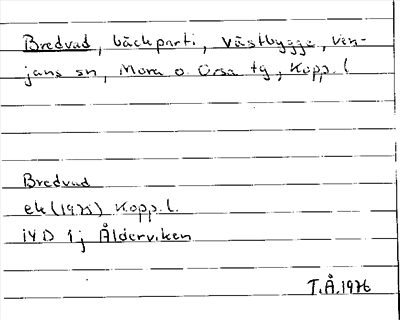 Bredvad, bäckparti, Västbygge, Ven-
jans sn, Mora o. Orsa tg, Kopp. l
Bredvad
ek (1975) Kopp. l.
14D 1j Ålderviken
T.Å. 1976